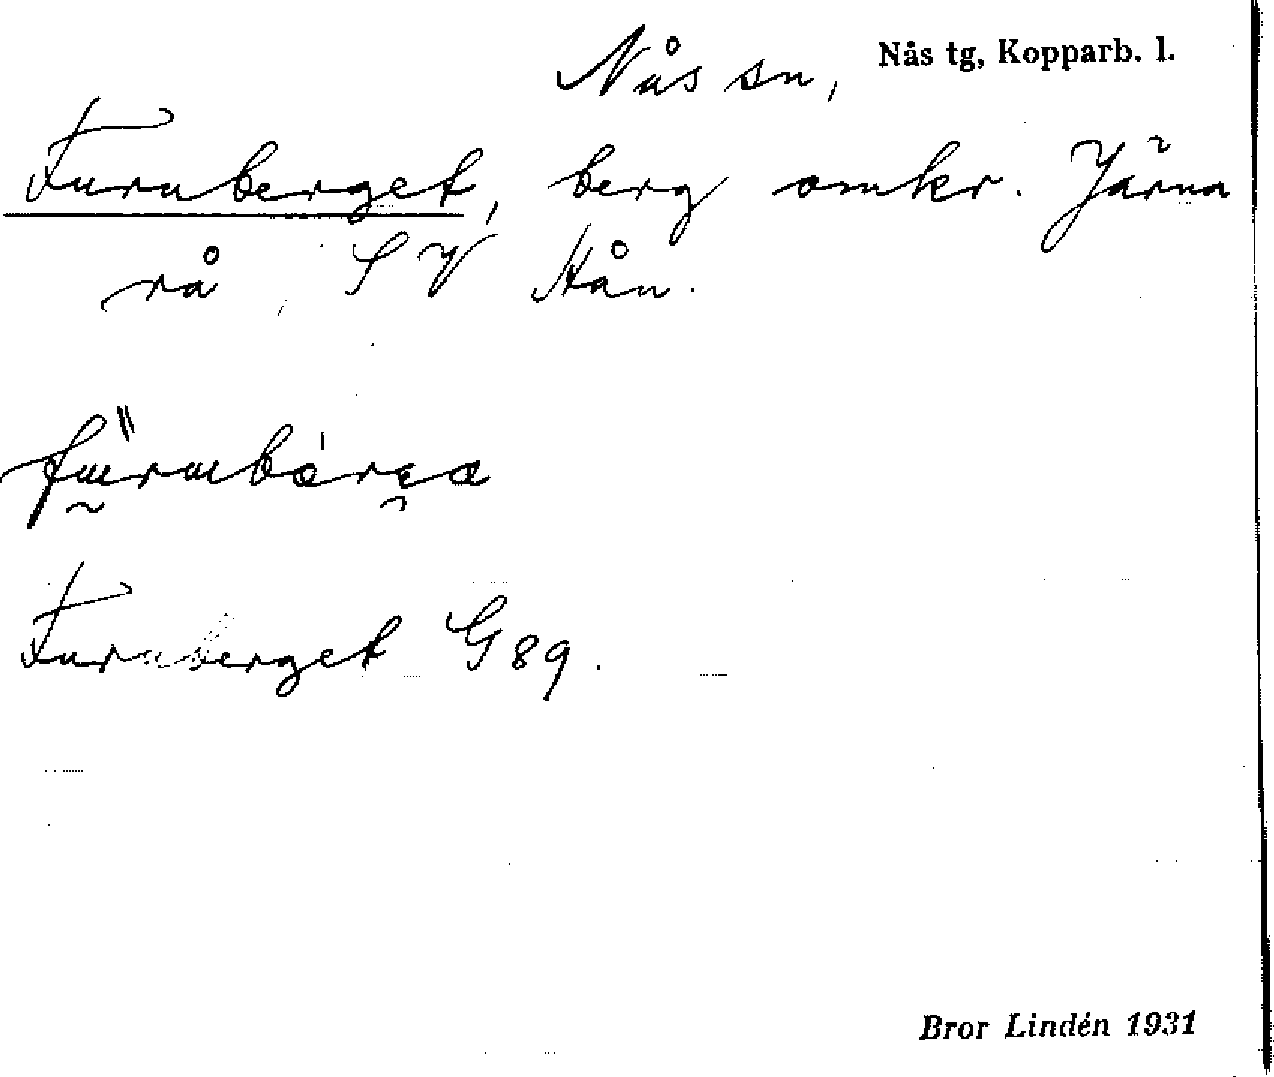 Nås sn, Nås tg, Kopparb. l.
Furuberget, berg omkr. Järna
rå, SV Hån.
Furuberget G89.
Bror Lindén 1931